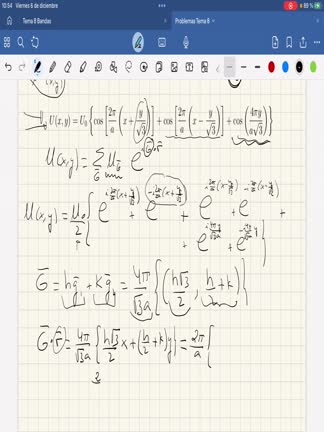 10:54 Viernes 6 de diciembre
89 %
Tema 8 Bandas
Problemas Tema 8
U(x,y) = U₀ { cos [ 2π/a ( x + y/√3 ) ] + cos [ 2π/a ( x − y/√3 ) ] + cos ( 4πy / a√3 ) }
U(x,y) = Σ_G U_G e^{i G·r}
U(x,y) = U₀/2 { e^{i 2π/a (x + y/√3)} + e^{-i 2π/a (x + y/√3)} + e^{i 2π/a (x − y/√3)} + e^{-i 2π/a (x − y/√3)} +
G = h g₁ + k g₂ = 4π/√3a { ( h√3/2 , h/2 + k ) }
G · r = 4π/√3a { h√3/2 x + ( h/2 + k ) y } = 2π/a {